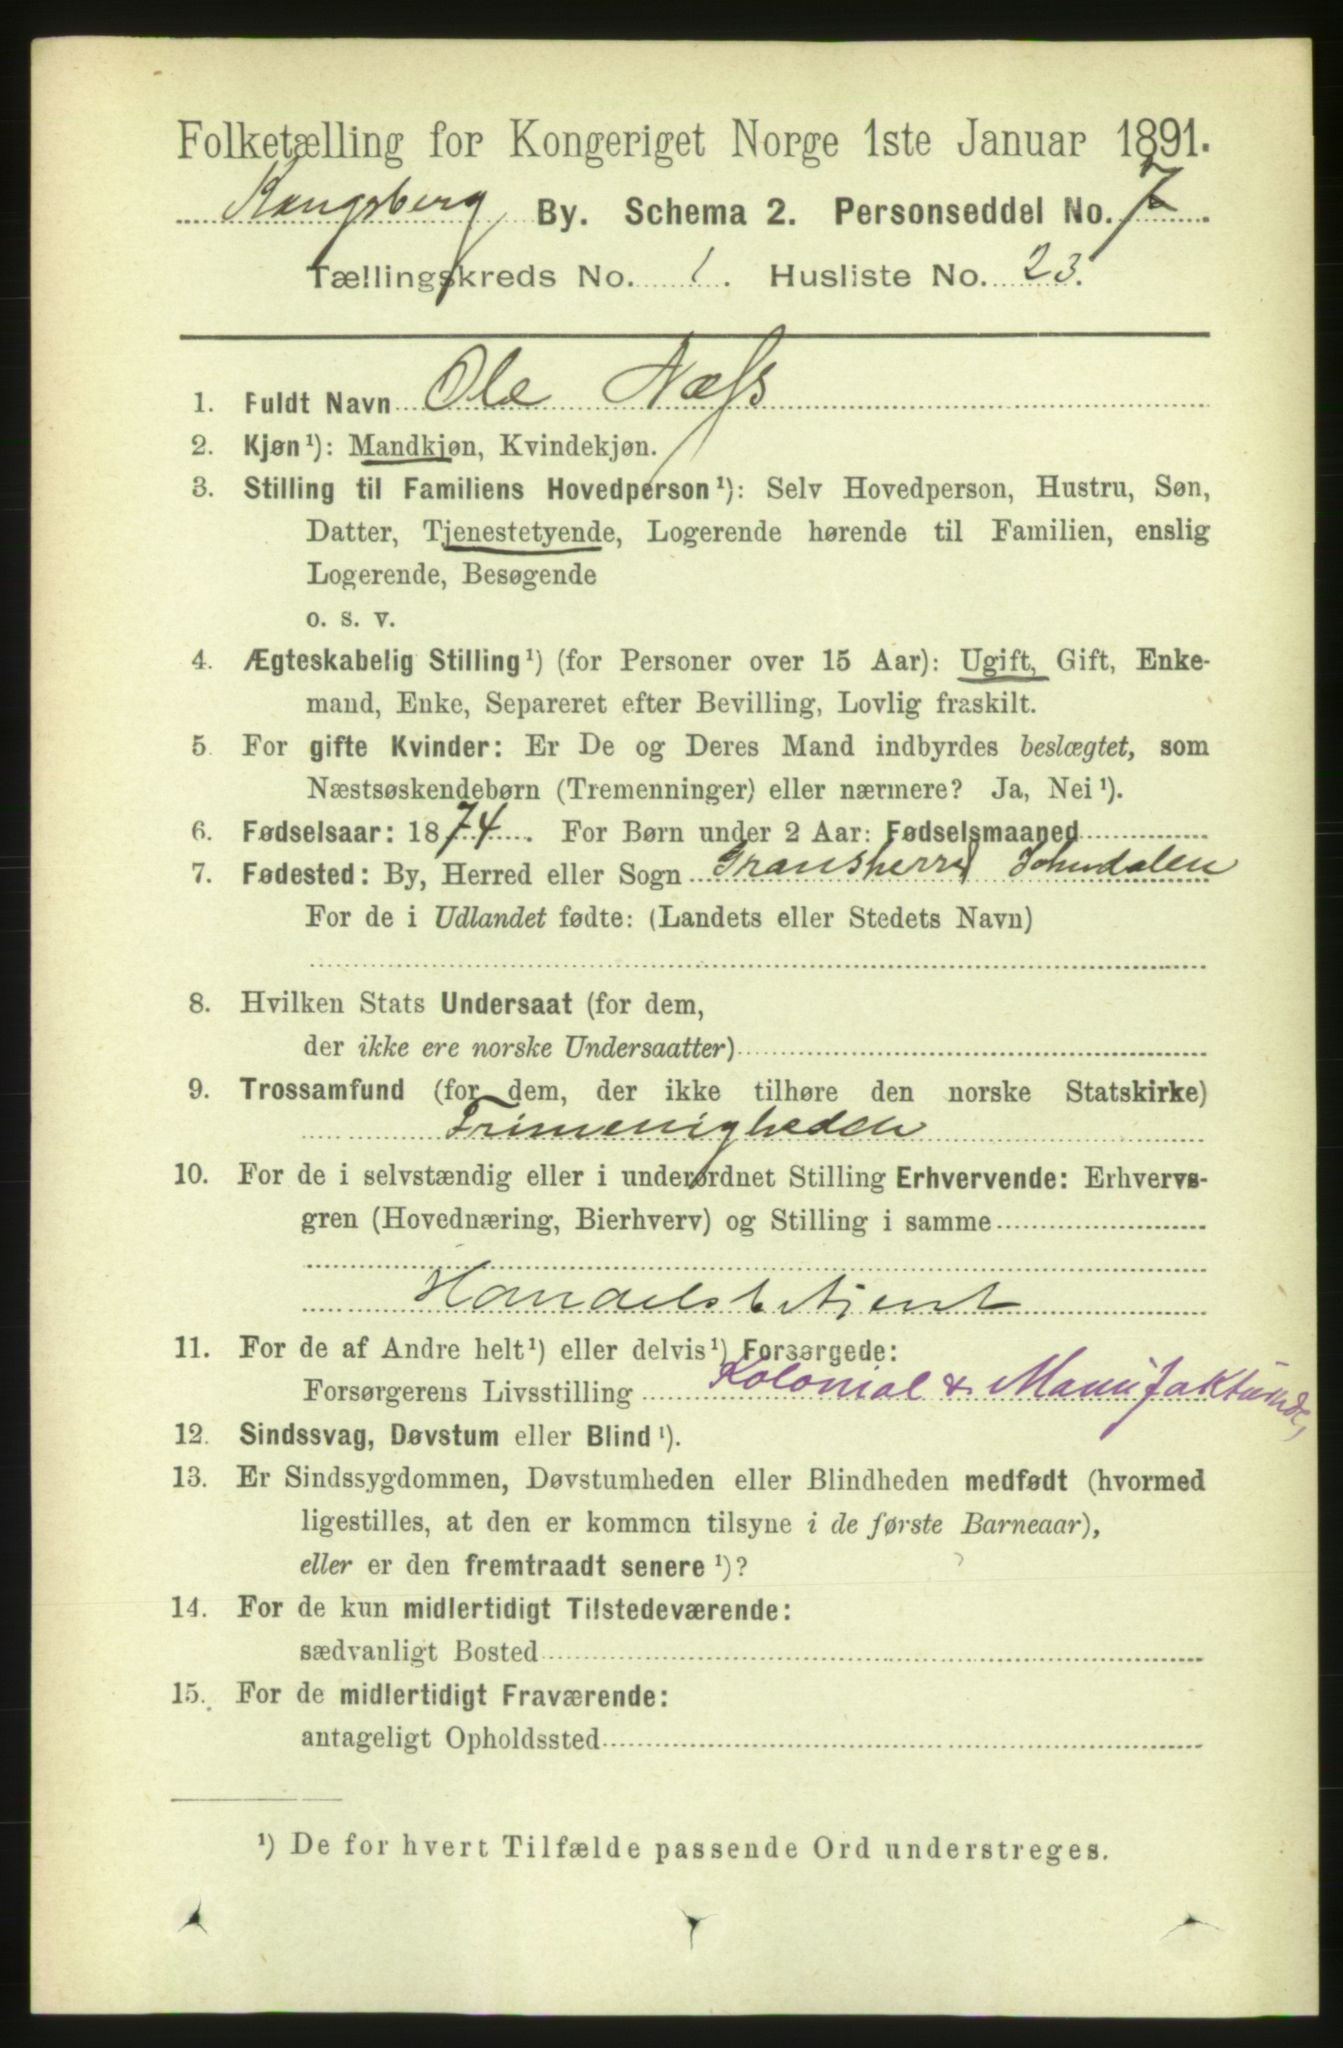 Folketælling for Kongeriget Norge 1ste Januar 1891.
Kongsberg By. Schema 2. Personseddel No. 7
Tællingskreds No. 1. Husliste No. 23.
1. Fuldt Navn Ole Næss
2. Kjøn¹): Mandkjøn, Kvindekjøn.
3. Stilling til Familiens Hovedperson¹): Selv Hovedperson, Hustru, Søn,
Datter, Tjenestetyende, Logerende hørende til Familien, enslig
Logerende, Besøgende
o. s. v.
4. Ægteskabelig Stilling¹) (for Personer over 15 Aar): Ugift, Gift, Enke-
mand, Enke, Separeret efter Bevilling, Lovlig fraskilt.
5. For gifte Kvinder: Er De og Deres Mand indbyrdes beslægtet, som
Næstsøskendebørn (Tremenninger) eller nærmere? Ja, Nei¹).
6. Fødselsaar: 1874. For Børn under 2 Aar: Fødselsmaaned
7. Fødested: By, Herred eller Sogn Gransherred Johndalen
For de i Udlandet fødte: (Landets eller Stedets Navn)
8. Hvilken Stats Undersaat (for dem,
der ikke ere norske Undersaatter)
9. Trossamfund (for dem, der ikke tilhøre den norske Statskirke)
Frimenigheden
10. For de i selvstændig eller i underordnet Stilling Erhvervende: Erhvervs-
gren (Hovednæring, Bierhverv) og Stilling i samme
Handelsbetjent
11. For de af Andre helt¹) eller delvis¹) Forsørgede:
Forsørgerens Livsstilling Kolonial &
12. Sindssvag, Døvstum eller Blind¹).
13. Er Sindssygdommen, Døvstumheden eller Blindheden medfødt (hvormed
ligestilles, at den er kommen tilsyne i de første Barneaar),
eller er den fremtraadt senere¹)?
14. For de kun midlertidigt Tilstedeværende:
sædvanligt Bosted
15. For de midlertidigt Fraværende:
antageligt Opholdssted
¹) De for hvert Tilfælde passende Ord understreges.